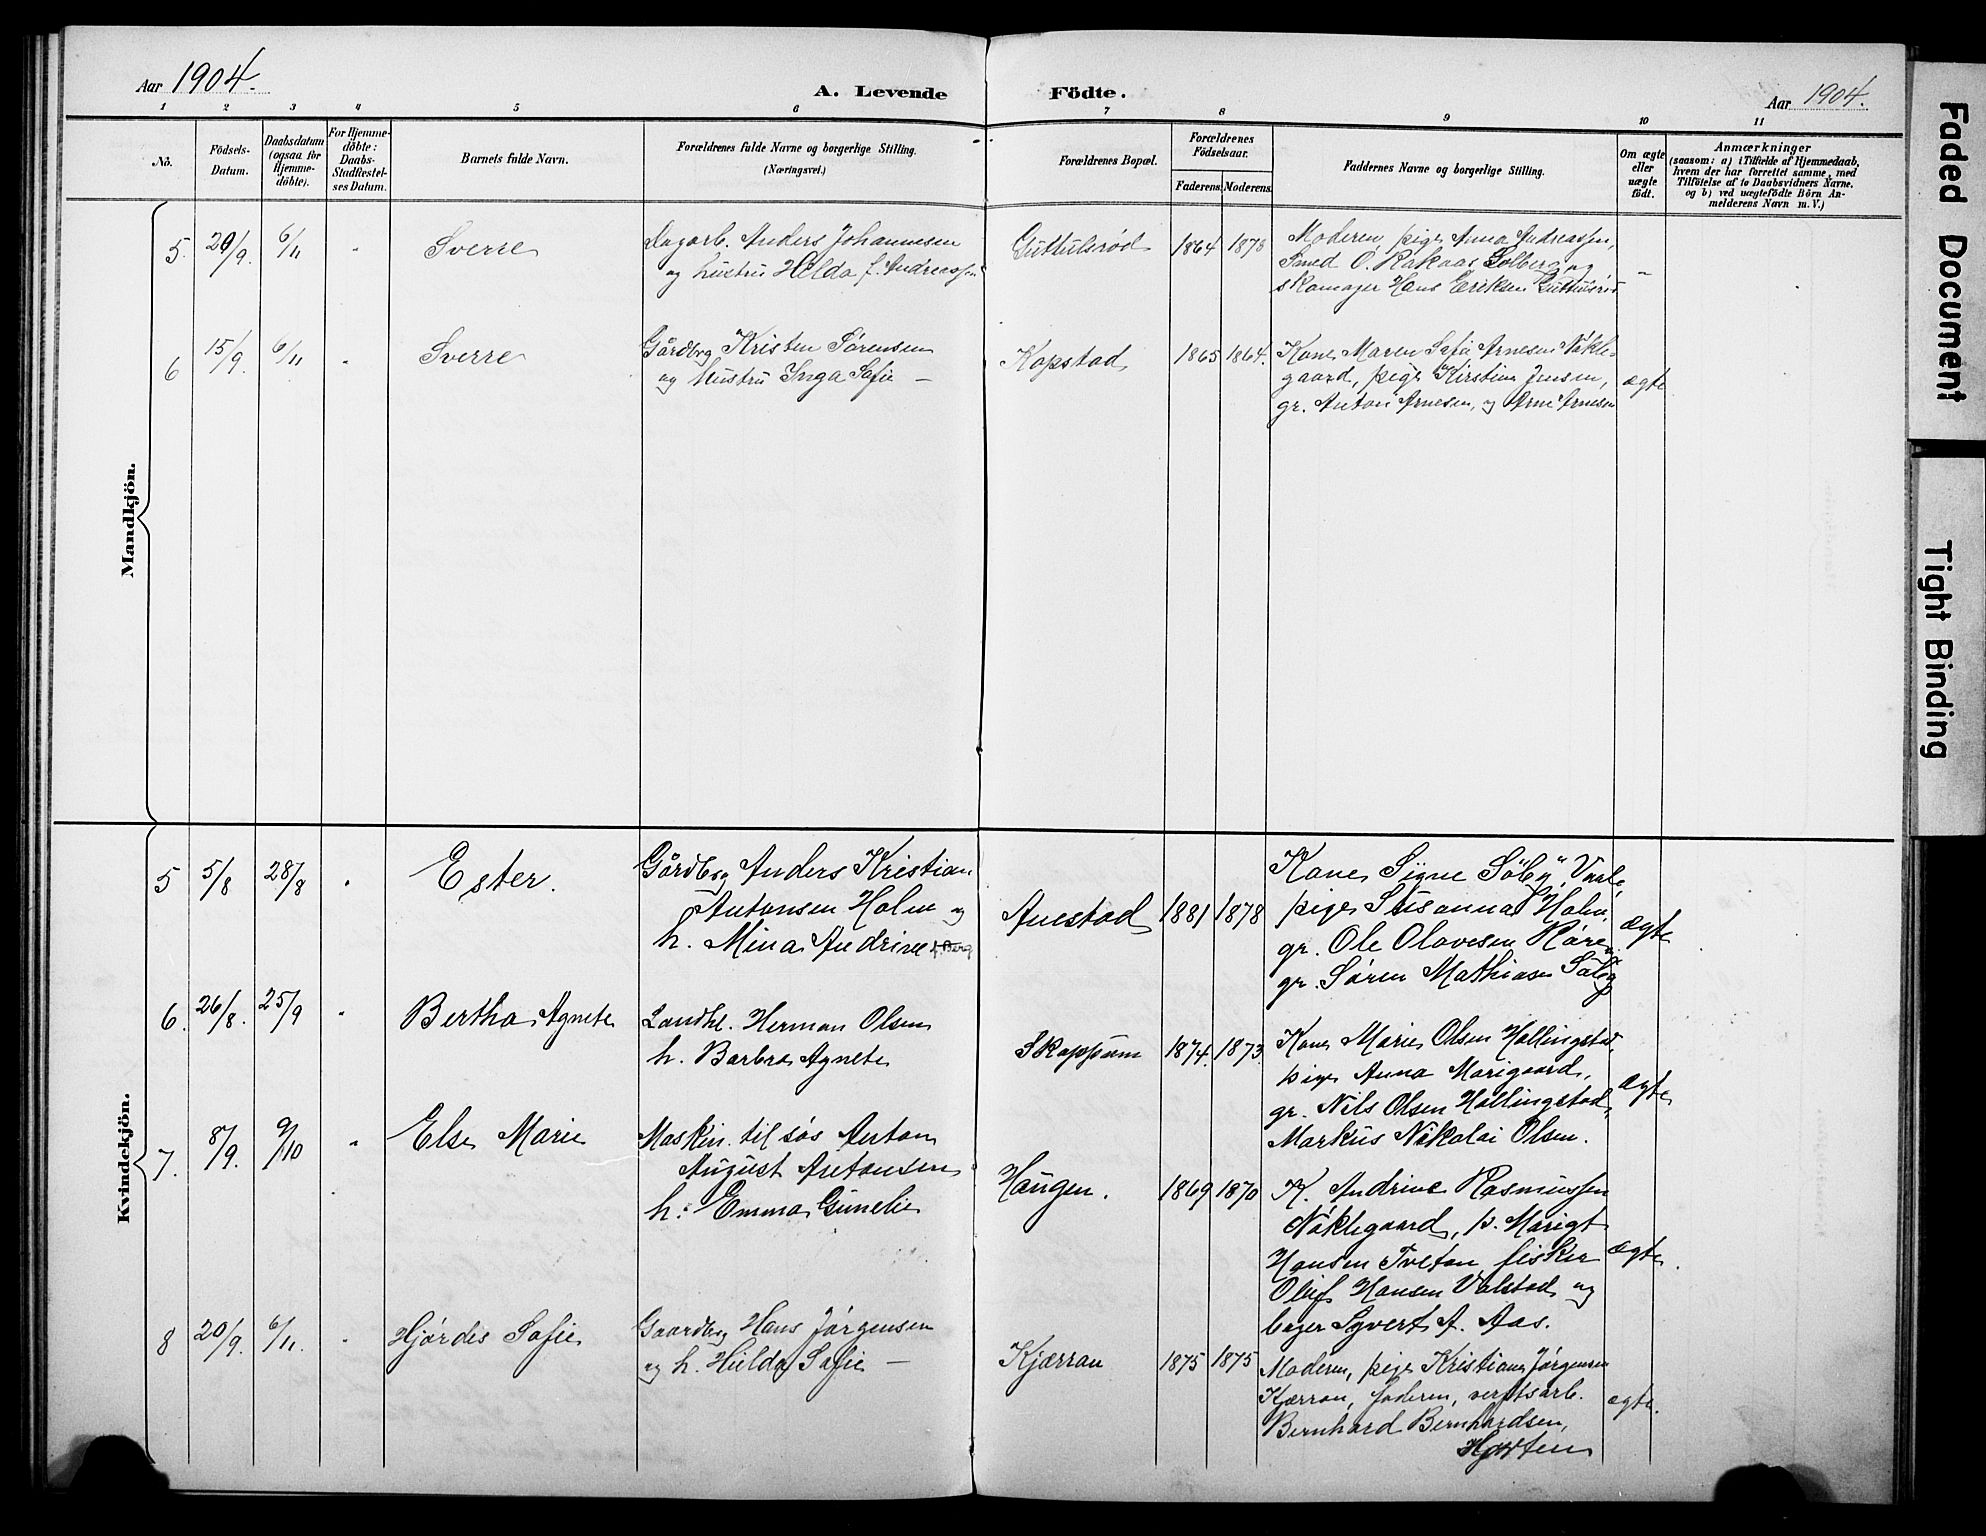 Aar 1904.
A. Levende Födte.
Aar 1904.
1 2 3 4 5 6 7 8 9 10 11
No.
Födsels-Datum.
Daabsdatum (ogsaa for Hjemme-döbte).
For Hjemme-döbte: Daabs-Stadfæstel-ses Datum.
Barnets fulde Navn.
Forældrenes fulde Navne og borgerlige Stilling.
(Næringsvei.)
Forældrenes Bopæl.
Forældrenes Födselsaar.
Faderens. Moderens.
Faddernes Navne og borgerlige Stilling.
Om ægte eller uægte födt.
Anmærkninger
(saasom: a) i Tilfælde af Hjemmedaab,
hvem der har forrettet samme, med
Tilföielse af to Daabsvidners Navne.
og b) ved uægtefödte Börn An-
melderens Navn m. V.)
Mandkjön.
5. 29/9. 6/11 " Sverre
Dagarb. Anders Johannesen
og hustru Hilda f. Andreassen
Guttulsrød 1864 1873
Moderen, pige Anna Andreassen,
Smed O. Rakaas Solberg og
skomager Hans Eriksen Guttulsrød
-
6 15/9. 6/11 " Sverre
Gårdbrg Kristen Sørensen
og hustru Inga Sofie —
Kopstad 1865 1864.
Kone Maren Sofie Arnesen Nøkle-
gaard, pige Kirstine Jensen,
gr. Anton Arnesen, og Arne Arnesen
ægte
Kvindekjön.
5 5/8 28/8 " Ester.
Gårdbrg Anders Kristian
Antonsen Holm og
h. Mina Andrine f. Berg
Anestad 1881 1878
Kone Signe Söby, Vaale,
pige Susanna Holm,
gr. Ole Olavesen Røre,
gr. Søren Mathiasen Söby
ægte
6. 26/8. 25/9 " Bertha Agnete
Landhl. Herman Olsen
h. Barbra Agnete
Skoppum 1874. 1873.
Kone Marie Olsen Hollingstad,
pige Anna Morigaard,
gr. Nils Olsen Hollingstad,
Markus Nikolai Olsen.
ægte
7. 8/9. 9/10 " Else Marie
Maskin. til søs Anton
August Antonsen
h: Emma Gunelie
Haugen. 1869 1870
K. Andrine Rasmussen
Nöklegaard, p. Marigt
Hansen Tveten, fisker
Oluf Hansen Valstad og
bager Syvert A. Aas.
ægte.
8 20/9. 6/11. " Hjørdis Sofie
Gaardbrg Hans Jørgensen
og h. Hilda Sofie —
Kjærran 1875 1875
Moderen, pige Kristiane Jørgensen
Kjærran, faderen, verftsarb.
Bernhard Bernhardsen,
Horten
ægte.
Faded Document
Tight Binding